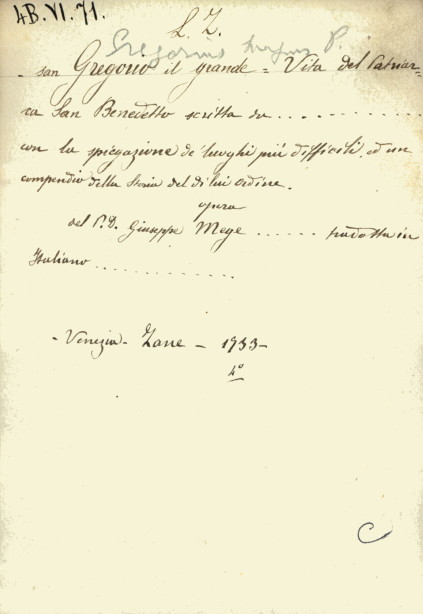 4B.VI.71.
L. Z.
Gregorius magnus P.
- san Gregorio il grande = Vita del Patriar-
ca San Benedetto scritta da . . . . . . . . . . . .
con la spiegazione de' luoghi più difficili, ed un
compendio della storia del di lui ordine.
opera
del P. D. Giuseppe Mege . . . . . . tradotta in
Italiano . . . . . . . . . . . . .
- Venezia - Zane - 1733 -
4º
C